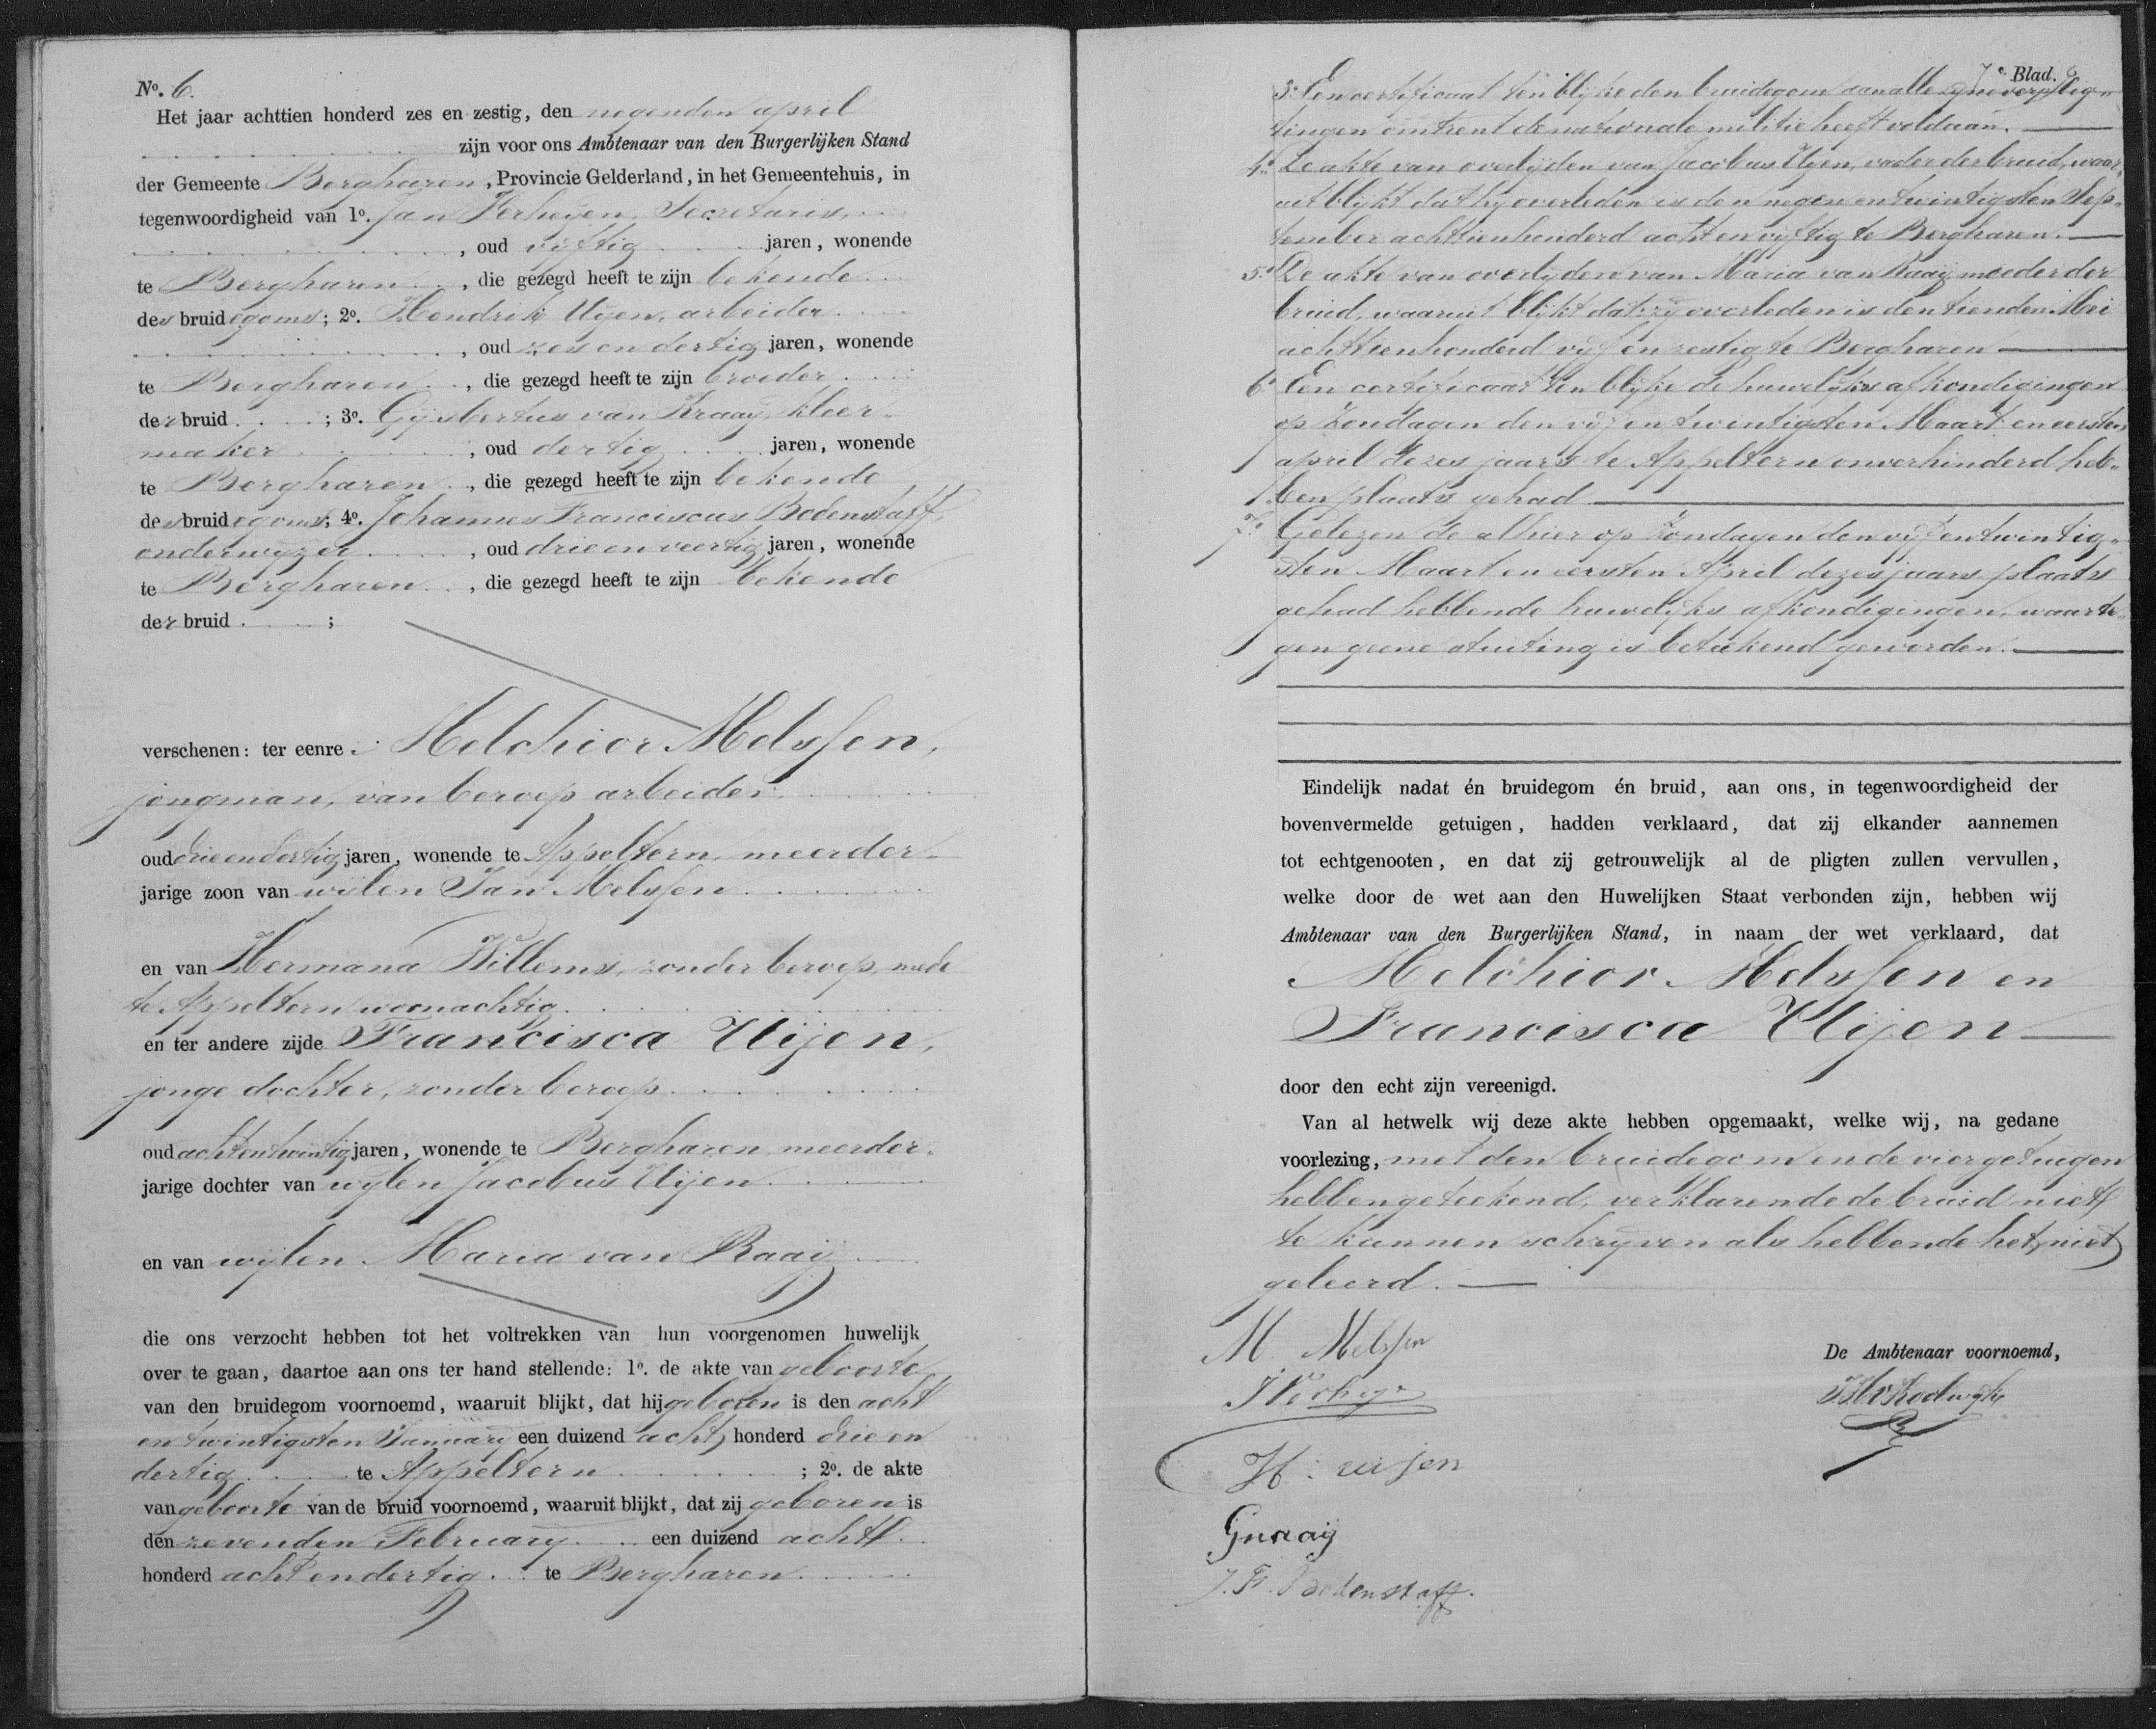 No. 6.
Het jaar achttien honderd zes en zestig, den negenden april
zijn voor ons Ambtenaar van den Burgerlijken Stand
der Gemeente Bergharen, Provincie Gelderland, in het Gemeentehuis, in
tegenwoordigheid van 1o. Jan Verheijen, Secretaris,
, oud vijftig jaren, wonende
te Bergharen, die gezegd heeft te zijn bekende
des bruidegoms; 2o. Hendrik Uijen, arbeider
, oud zes en dertig jaren, wonende
te Bergharen, die gezegd heeft te zijn broeder
der bruid ; 3o. Gijsbertus van Kraaij, kleer-
maker , oud dertig jaren, wonende
te Bergharen, die gezegd heeft te zijn bekende
des bruidegoms; 4o. Johannes Franciscus Bodenstaff,
onderwijzer , oud drie en veertig jaren, wonende
te Bergharen, die gezegd heeft te zijn bekende
der bruid ;
verschenen: ter eenre Melchior Melssen,
jongman, van beroep arbeider
oud drie en dertig jaren, wonende te Appeltern meerder-
jarige zoon van wijlen Jan Melssen
en van Hermana Willems, zonder beroep, mede
te Appeltern woonachtig
en ter andere zijde Francisca Uijen,
jonge dochter, zonder beroep
oud acht en twintig jaren, wonende te Bergharen, meerder-
jarige dochter van wijlen Jacobus Uijen
en van wijlen Maria van Raaij
die ons verzocht hebben tot het voltrekken van hun voorgenomen huwelijk
over te gaan, daartoe aan ons ter hand stellende: 1o. de akte van geboorte
van den bruidegom voornoemd, waaruit blijkt, dat hij geboren is den acht
en twintigsten Januarij een duizend acht honderd drie en
dertig te Appeltern ; 2o. de akte
van geboorte van de bruid voornoemd, waaruit blijkt, dat zij geboren is
den zevenden February een duizend acht
honderd acht en dertig te Bergharen
7e Blad. 6
3o Een certificaat ten blijke den bruidegom aan alle zijne verplig-
tingen omtrent de nationale militie heeft voldaan.
4o De akte van overlijden van Jacobus Uijen, vader der bruid, waar-
uit blijkt dat hij overleden is den negen en twintigsten Sep-
tember achttienhonderd acht en vijftig te Bergharen.
5o De akte van overlijden van Maria van Raaij moeder der
bruid, waaruit blijkt dat zij overleden is den tienden Mei
achttienhonderd vijf en zestig te Bergharen
6o Een certificaat ten blijke de huwelijks afkondigingen
op Zondagen den vijf en twintigsten Maart en eersten
april dezes jaars te Appeltern onverhinderd heb-
ben plaats gehad
7o Gelezen de alhier op Zondagen den vijf en twintig-
sten Maart en eersten April dezes jaars plaats
gehad hebbende huwelijks afkondigingen, waarte-
gen geene stuiting is beteekend geworden.
Eindelijk nadat én bruidegom én bruid, aan ons, in tegenwoordigheid der
bovenvermelde getuigen, hadden verklaard, dat zij elkander aannemen
tot echtgenooten, en dat zij getrouwelijk al de pligten zullen vervullen,
welke door de wet aan den Huwelijken Staat verbonden zijn, hebben wij
Ambtenaar van den Burgerlijken Stand, in naam der wet verklaard, dat
Melchior Melssen en
Francisca Uijen
door den echt zijn vereenigd.
Van al hetwelk wij deze akte hebben opgemaakt, welke wij, na gedane
voorlezing, met den bruidegom en de vier getuigen
hebben geteekend, verklarende de bruid niet
te kunnen schrijven als hebbende het niet
geleerd.
M Melssen
De Ambtenaar voornoemd,
H: uijen
J. F. Bodenstaff.